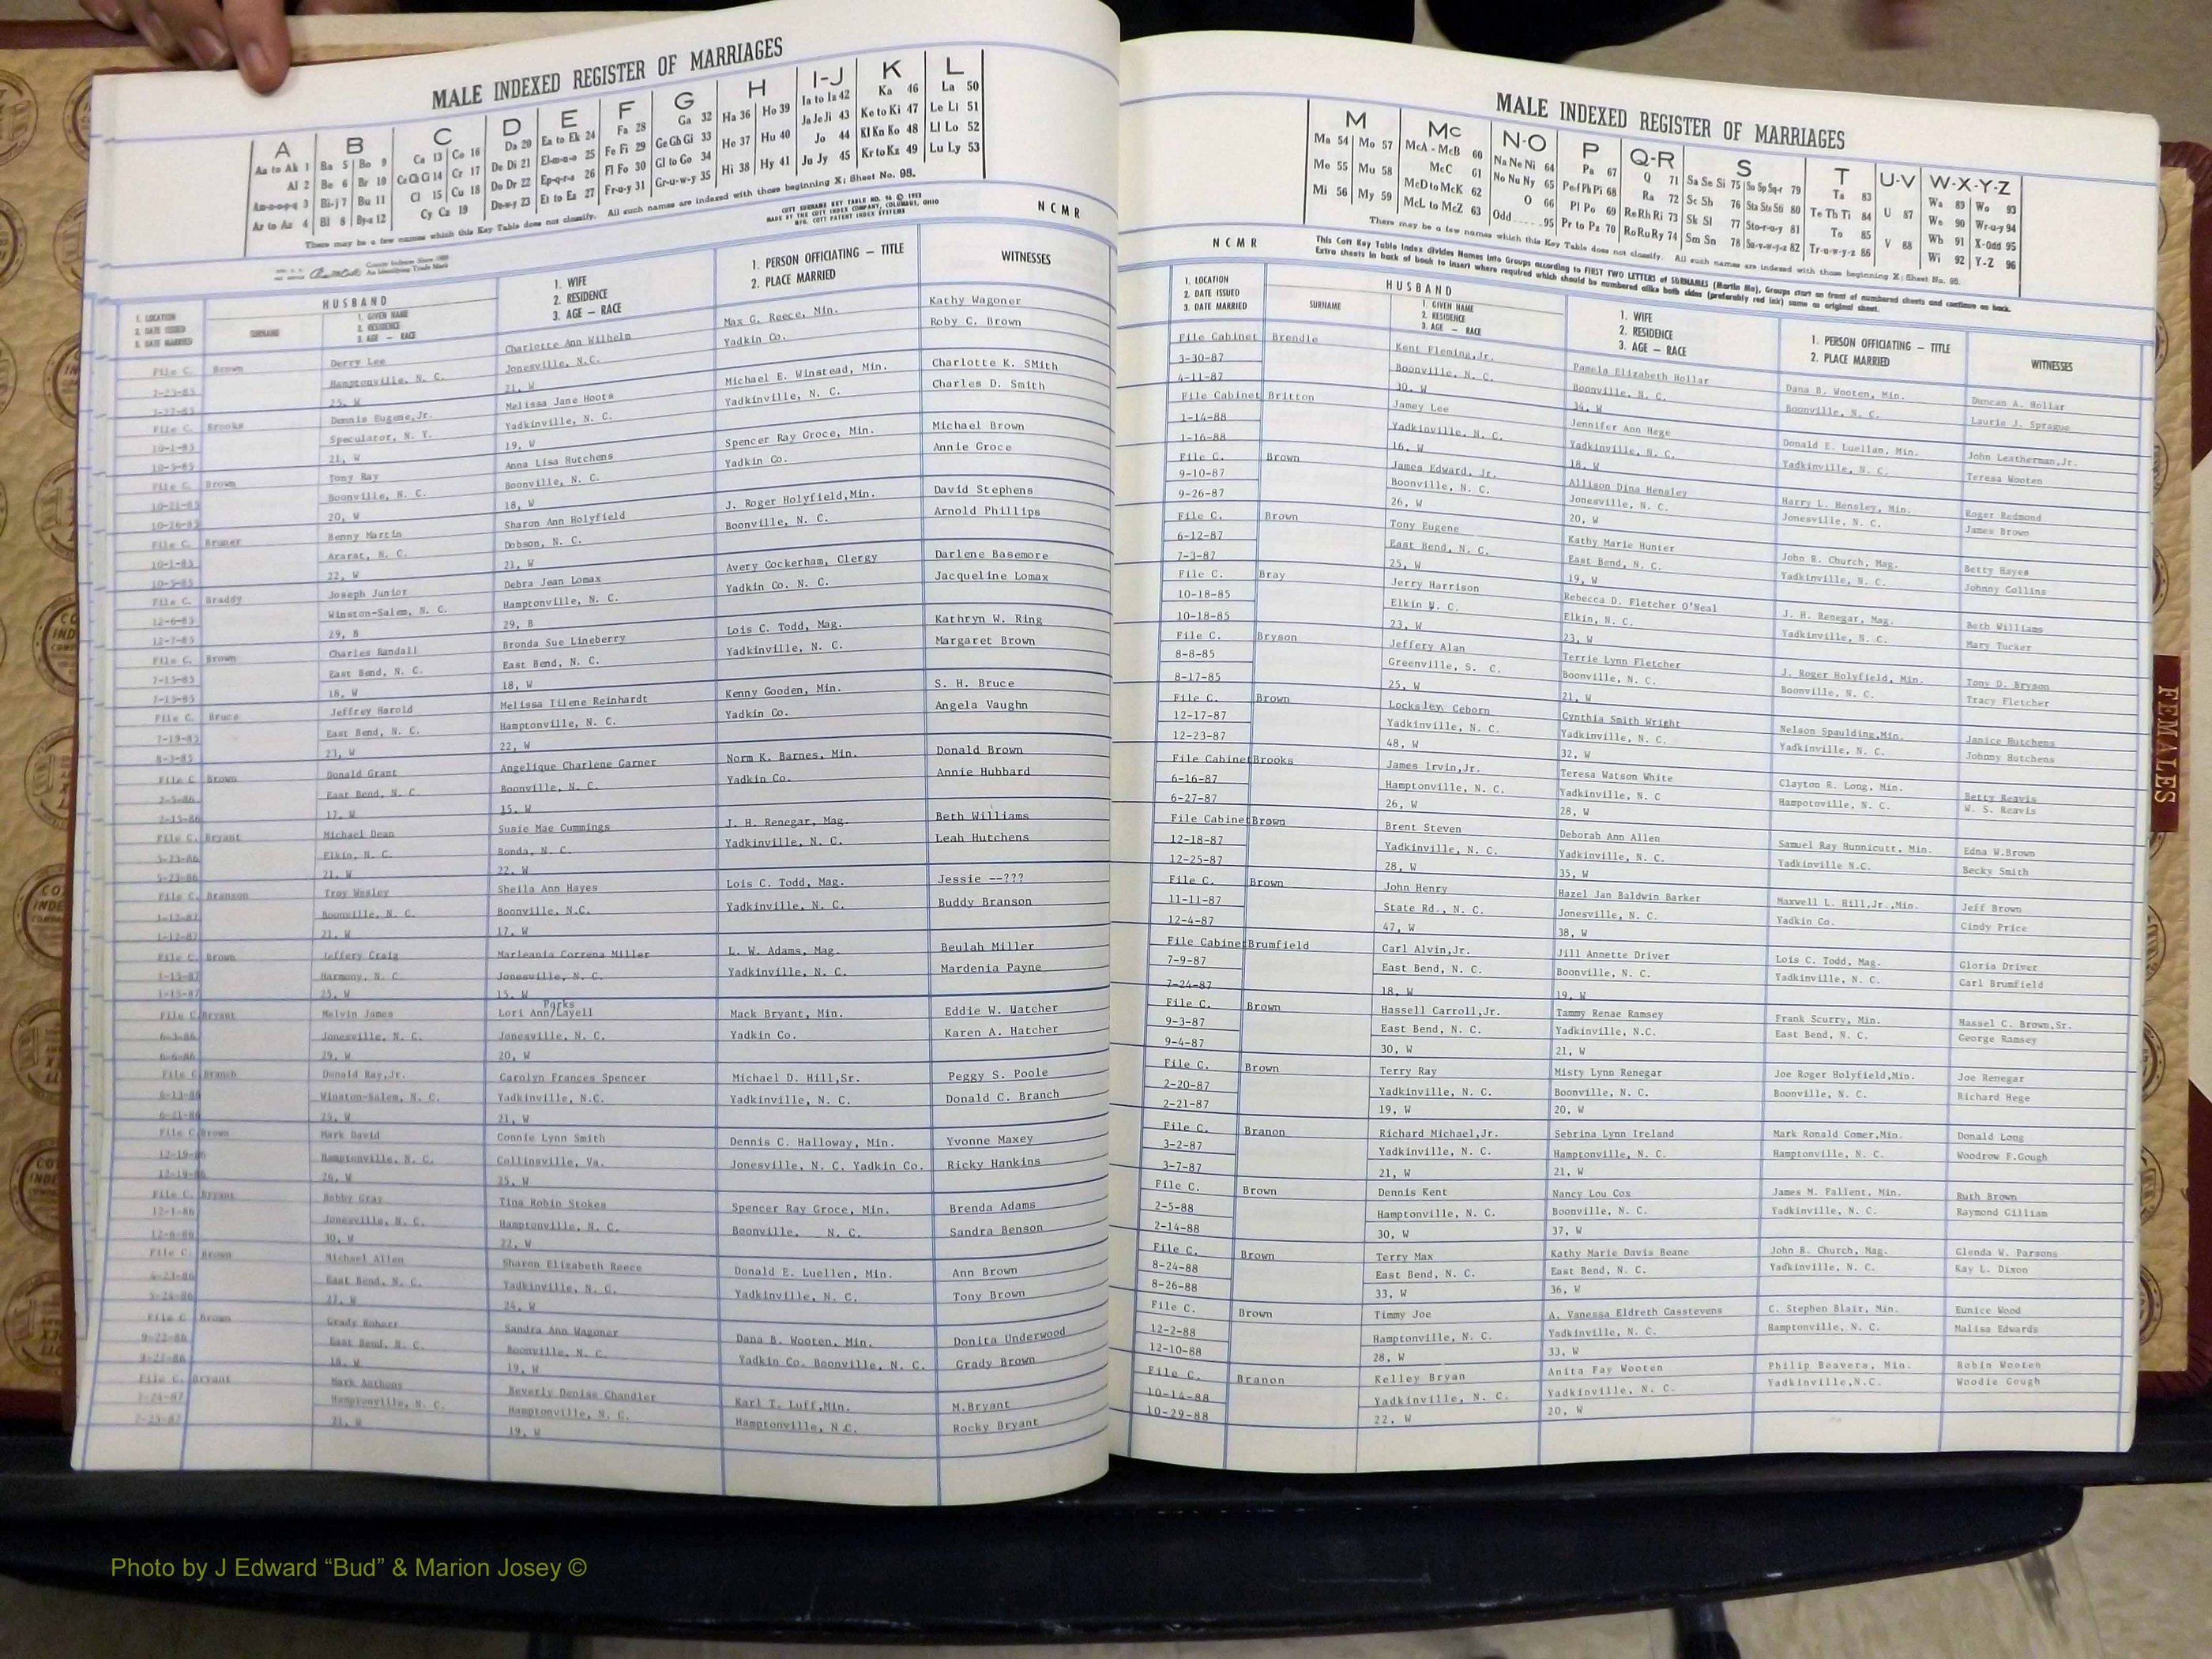 MALE INDEXED REGISTER OF MARRIAGES
A B C D E F G H I-J K L
Aa to Ak 1 Ba 5 Bo 9 Ca 13 Co 16 Da 20 Ea to Ek 24 Fa 28 Ga 32 Ha 36 Ho 39 Ia to Iz 42 Ka 46 La 50
Al 2 Be 6 Br 10 Ce Ch Ci 14 Cr 17 De Di 21 El-m-n-o 25 Fe Fi 29 Ge Gh Gi 33 He 37 Hu 40 Ja Je Ji 43 Ke to Ki 47 Le Li 51
Am-n-o-p-q 3 Bi-j 7 Bu 11 Cl 15 Cu 18 Do Dr 22 Ep-q-r-s 26 Fl Fo 30 Gl to Go 34 Hi 38 Hy 41 Jo 44 Kl Kn Ko 48 Ll Lo 52
Ar to Az 4 Bl 8 By-z 12 Cy Cz 19 Du-w-y 23 Et to Ez 27 Fr-u-y 31 Gr-u-w-y 35 Ju Jy 45 Kr to Kz 49 Lu Ly 53
There may be a few names which this Key Table does not classify. All such names are indexed with those beginning X; Sheet No. 98.
COTT SURNAME KEY TABLE NO.
MADE BY THE COTT INDEX COMPANY, COLUMBUS, OHIO
MFG. COTT PATENT INDEX SYSTEMS
NCMR
County Indexes Since 1888
An Identifying Trade Mark
1. LOCATION
2. DATE ISSUED
3. DATE MARRIED
HUSBAND
SURNAME
1. GIVEN NAME
2. RESIDENCE
3. AGE — RACE
1. WIFE
2. RESIDENCE
3. AGE — RACE
1. PERSON OFFICIATING — TITLE
2. PLACE MARRIED
WITNESSES
File C. Brown Derry Lee Charlotte Ann Wilhelm Max G. Reece, Min. Kathy Wagoner
Hamptonville, N. C. Jonesville, N.C. Yadkin Co. Roby C. Brown
25, W 21, W
File C. Brooks Dennis Eugene,Jr. Melissa Jane Hoots Michael E. Winstead, Min. Charlotte K. SMith
10-1-85 Speculator, N. Y. Yadkinville, N. C. Yadkinville, N. C. Charles D. Smith
10-5-85 21, W 19, W
File C. Brown Tony Ray Anna Lisa Hutchens Spencer Ray Groce, Min. Michael Brown
10-21-85 Boonville, N. C. Boonville, N. C. Yadkin Co. Annie Groce
10-26-85 20, W 18, W
File C. Bruner Benny Martin Sharon Ann Holyfield J. Roger Holyfield,Min. David Stephens
10-1-85 Ararat, N. C. Dobson, N. C. Boonville, N. C. Arnold Phillips
10-5-85 22, W 21, W
File C. Braddy Joseph Junior Debra Jean Lomax Avery Cockerham, Clergy Darlene Basemore
12-6-85 Winston-Salem, N. C. Hamptonville, N. C. Yadkin Co. N. C. Jacqueline Lomax
12-7-85 29, B 29, B
File C. Brown Charles Randall Bronda Sue Lineberry Lois C. Todd, Mag. Kathryn W. Ring
7-15-85 East Bend, N. C. East Bend, N. C. Yadkinville, N. C. Margaret Brown
7-15-85 18, W 18, W
File C. Bruce Jeffrey Harold Melissa Iilene Reinhardt Kenny Gooden, Min. S. H. Bruce
7-19-85 East Bend, N. C. Hamptonville, N. C. Yadkin Co. Angela Vaughn
8-3-85 23, W 22, W
File C Brown Donald Grant Angelique Charlene Garner Norm K. Barnes, Min. Donald Brown
2-5-86 East Bend, N. C Boonville, N. C. Yadkin Co. Annie Hubbard
2-15-86 17, W 15, W
File C. Bryant Michael Dean Susie Mae Cummings J. H. Renegar, Mag. Beth Williams
5-23-86 Elkin, N. C. Ronda, N. C. Yadkinville, N. C. Leah Hutchens
5-23-86 21, W 22, W
File C. Branson Troy Wesley Sheila Ann Hayes Lois C. Todd, Mag. Jessie --???
1-12-87 Boonville, N. C. Boonville, N.C. Yadkinville, N. C. Buddy Branson
1-12-87 21, W 17, W
File C. Brown Jeffery Craig Marleania Correna Miller L. W. Adams, Mag. Beulah Miller
1-15-87 Harmony, N. C. Jonesville, N. C. Yadkinville, N. C. Mardenia Payne
1-15-87 25, W 15, W
Parks
File C. Bryant Melvin James Lori Ann/Layell Mack Bryant, Min. Eddie W. Hatcher
6-3-86 Jonesville, N. C. Jonesville, N. C. Yadkin Co. Karen A. Hatcher
6-6-86 29, W 20, W
File C Branch Donald Ray,Jr. Carolyn Frances Spencer Michael D. Hill,Sr. Peggy S. Poole
6-13-86 Winston-Salem, N. C. Yadkinville, N.C. Yadkinville, N. C. Donald C. Branch
6-21-86 25, W 21, W
File C Brown Mark David Connie Lynn Smith Dennis C. Halloway, Min. Yvonne Maxey
12-19-86 Hamptonville, N. C. Collinsville, Va. Jonesville, N. C. Yadkin Co. Ricky Hankins
12-19-86 26, W 25, W
File C. Bryant Bobby Gray Tina Robin Stokes Spencer Ray Groce, Min. Brenda Adams
12-1-86 Jonesville, N. C. Hamptonville, N. C. Boonville, N. C. Sandra Benson
12-6-86 30, W 22, W
File C. Brown Michael Allen Sharon Elizabeth Reece Donald E. Luellen, Min. Ann Brown
4-23-86 East Bend, N. C. Yadkinville, N. C. Yadkinville, N. C. Tony Brown
5-24-86 27, W 24, W
File C Brown Grady Robert Sandra Ann Wagoner Dana B. Wooten, Min. Donita Underwood
9-22-86 East Bend, N. C. Boonville, N. C. Yadkin Co. Boonville, N. C. Grady Brown
9-27-86 18, W 19, W
File C. Bryant Mark Anthony Beverly Denise Chandler Karl T. Luff,Min. M.Bryant
Hamptonville, N. C. Hamptonville, N. C. Hamptonville, N.C. Rocky Bryant
21, W 19, W
MALE INDEXED REGISTER OF MARRIAGES
M Mc N-O P Q-R S T U-V W-X-Y-Z
Ma 54 Mo 57 McA - McB 60 Na Ne Ni 64 Pa 67 Q 71 Sa Se Si 75 So Sp Sq-r 79 Ta 83 U 87 Wa 89 Wo 93
Me 55 Mu 58 McC 61 No Nu Ny 65 Pe-f Ph Pi 68 Ra 72 Sc Sh 76 Sta Ste Sti 80 Te Th Ti 84 V 88 We 90 Wr-u-y 94
Mi 56 My 59 McD to McK 62 O 66 Pl Po 69 Re Rh Ri 73 Sk Sl 77 Sto-r-u-y 81 To 85 Wh 91 X-Odd 95
McL to McZ 63 Odd 95 Pr to Pz 70 Ro Ru Ry 74 Sm Sn 78 Su-v-w-y-z 82 Tr-u-w-y-z 86 Wi 92 Y-Z 96
There may be a few names which this Key Table does not classify. All such names are indexed with those beginning X; Sheet No. 98.
NCMR
This Cott Key Table Index divides Names into Groups according to FIRST TWO LETTERS of SURNAMES (Martin Ma), Groups start on front of numbered sheets and continue on back.
Extra sheets in back of book to insert where required which should be numbered alike both sides (preferably red ink) same as original sheet.
1. LOCATION
2. DATE ISSUED
3. DATE MARRIED
HUSBAND
SURNAME
1. GIVEN NAME
2. RESIDENCE
3. AGE — RACE
1. WIFE
2. RESIDENCE
3. AGE — RACE
1. PERSON OFFICIATING — TITLE
2. PLACE MARRIED
WITNESSES
File Cabinet Brendle Kent Fleming,Jr. Pamela Elizabeth Hollar Dana B. Wooten, Min. Duncan A. Hollar
3-30-87 Boonville, N. C. Boonville, N. C. Boonville, N. C. Laurie J. Sprague
4-11-87 30, W 34, W
File Cabinet Britton Jamey Lee Jennifer Ann Hege Donald E. Luellan, Min. John Leatherman,Jr.
1-14-88 Yadkinville, N. C. Yadkinville, N. C. Yadkinville, N. C. Teresa Wooten
1-16-88 16, W 18, W
File C. Brown James Edward, Jr. Allison Dina Hensley Harry L. Hensley, Min. Roger Redmond
9-10-87 Boonville, N. C. Jonesville, N. C. Jonesville, N. C. James Brown
9-26-87 26, W 20, W
File C. Brown Tony Eugene Kathy Marie Hunter John R. Church, Mag. Betty Hayes
6-12-87 East Bend, N. C. East Bend, N. C. Yadkinville, N. C. Johnny Collins
7-3-87 25, W 19, W
File C. Bray Jerry Harrison Rebecca D. Fletcher O'Neal J. H. Renegar, Mag. Beth Williams
10-18-85 Elkin N. C. Elkin, N. C. Yadkinville, N. C. Mary Tucker
10-18-85 23, W 23, W
File C. Bryson Jeffery Alan Terrie Lynn Fletcher J. Roger Holyfield, Min. Tony D. Bryson
8-8-85 Greenville, S. C. Boonville, N. C. Boonville, N. C. Tracy Fletcher
8-17-85 25, W 21, W
File C. Brown Locksley Ceborn Cynthia Smith Wright Nelson Spaulding,Min. Janice Hutchens
12-17-87 Yadkinville, N. C. Yadkinville, N. C. Yadkinville, N. C. Johnny Hutchens
12-23-87 48, W 32, W
File Cabinet Brooks James Irvin,Jr. Teresa Watson White Clayton R. Long, Min. Betty Reavis
6-16-87 Hamptonville, N. C. Yadkinville, N. C Hampotoville, N. C. W. S. Reavis
6-27-87 26, W 28, W
File Cabinet Brown Brent Steven Deborah Ann Allen Samuel Ray Hunnicutt, Min. Edna W.Brown
12-18-87 Yadkinville, N. C. Yadkinville, N. C. Yadkinville N.C. Becky Smith
12-25-87 28, W 35, W
File C. Brown John Henry Hazel Jan Baldwin Barker Maxwell L. Hill,Jr.,Min. Jeff Brown
11-11-87 State Rd., N. C. Jonesville, N. C. Yadkin Co. Cindy Price
12-4-87 47, W 38, W
File Cabinet Brumfield Carl Alvin,Jr. Jill Annette Driver Lois C. Todd, Mag. Gloria Driver
7-9-87 East Bend, N. C. Boonville, N. C. Yadkinville, N. C. Carl Brumfield
7-24-87 18, W 19, W
File C. Brown Hassell Carroll,Jr. Tammy Renae Ramsey Frank Scurry, Min. Hassel C. Brown,Sr.
9-3-87 East Bend, N. C. Yadkinville, N.C. East Bend, N. C. George Ramsey
9-4-87 30, W 21, W
File C. Brown Terry Ray Misty Lynn Renegar Joe Roger Holyfield,Min. Joe Renegar
2-20-87 Yadkinville, N. C. Boonville, N. C. Boonville, N. C. Richard Hege
2-21-87 19, W 20, W
File C. Branon Richard Michael,Jr. Sebrina Lynn Ireland Mark Ronald Comer,Min. Donald Long
3-2-87 Yadkinville, N. C. Hamptonville, N. C. Hamptonville, N. C. Woodrow F.Gough
3-7-87 21, W 21, W
File C. Brown Dennis Kent Nancy Lou Cox James M. Fallent, Min. Ruth Brown
2-5-88 Hamptonville, N. C. Boonville, N. C. Yadkinville, N. C. Raymond Gilliam
2-14-88 30, W 37, W
File C. Brown Terry Max Kathy Marie Davis Beane John B. Church, Mag. Glenda W. Parsons
8-24-88 East Bend, N. C. East Bend, N. C. Yadkinville, N. C. Kay L. Dixon
8-26-88 33, W 36, W
File C. Brown Timmy Joe A. Vanessa Eldreth Casstevens C. Stephen Blair, Min. Eunice Wood
12-2-88 Hamptonville, N. C. Yadkinville, N. C. Hamptonville, N. C. Malisa Edwards
12-10-88 28, W 33, W
File C. Branon Kelley Bryan Anita Fay Wooten Philip Beavers, Min. Robin Wooten
10-14-88 Yadkinville, N. C. Yadkinville, N. C. Yadkinville,N.C. Woodie Gough
10-29-88 22, W 20, W
FEMALES
Photo by J Edward “Bud” & Marion Josey ©